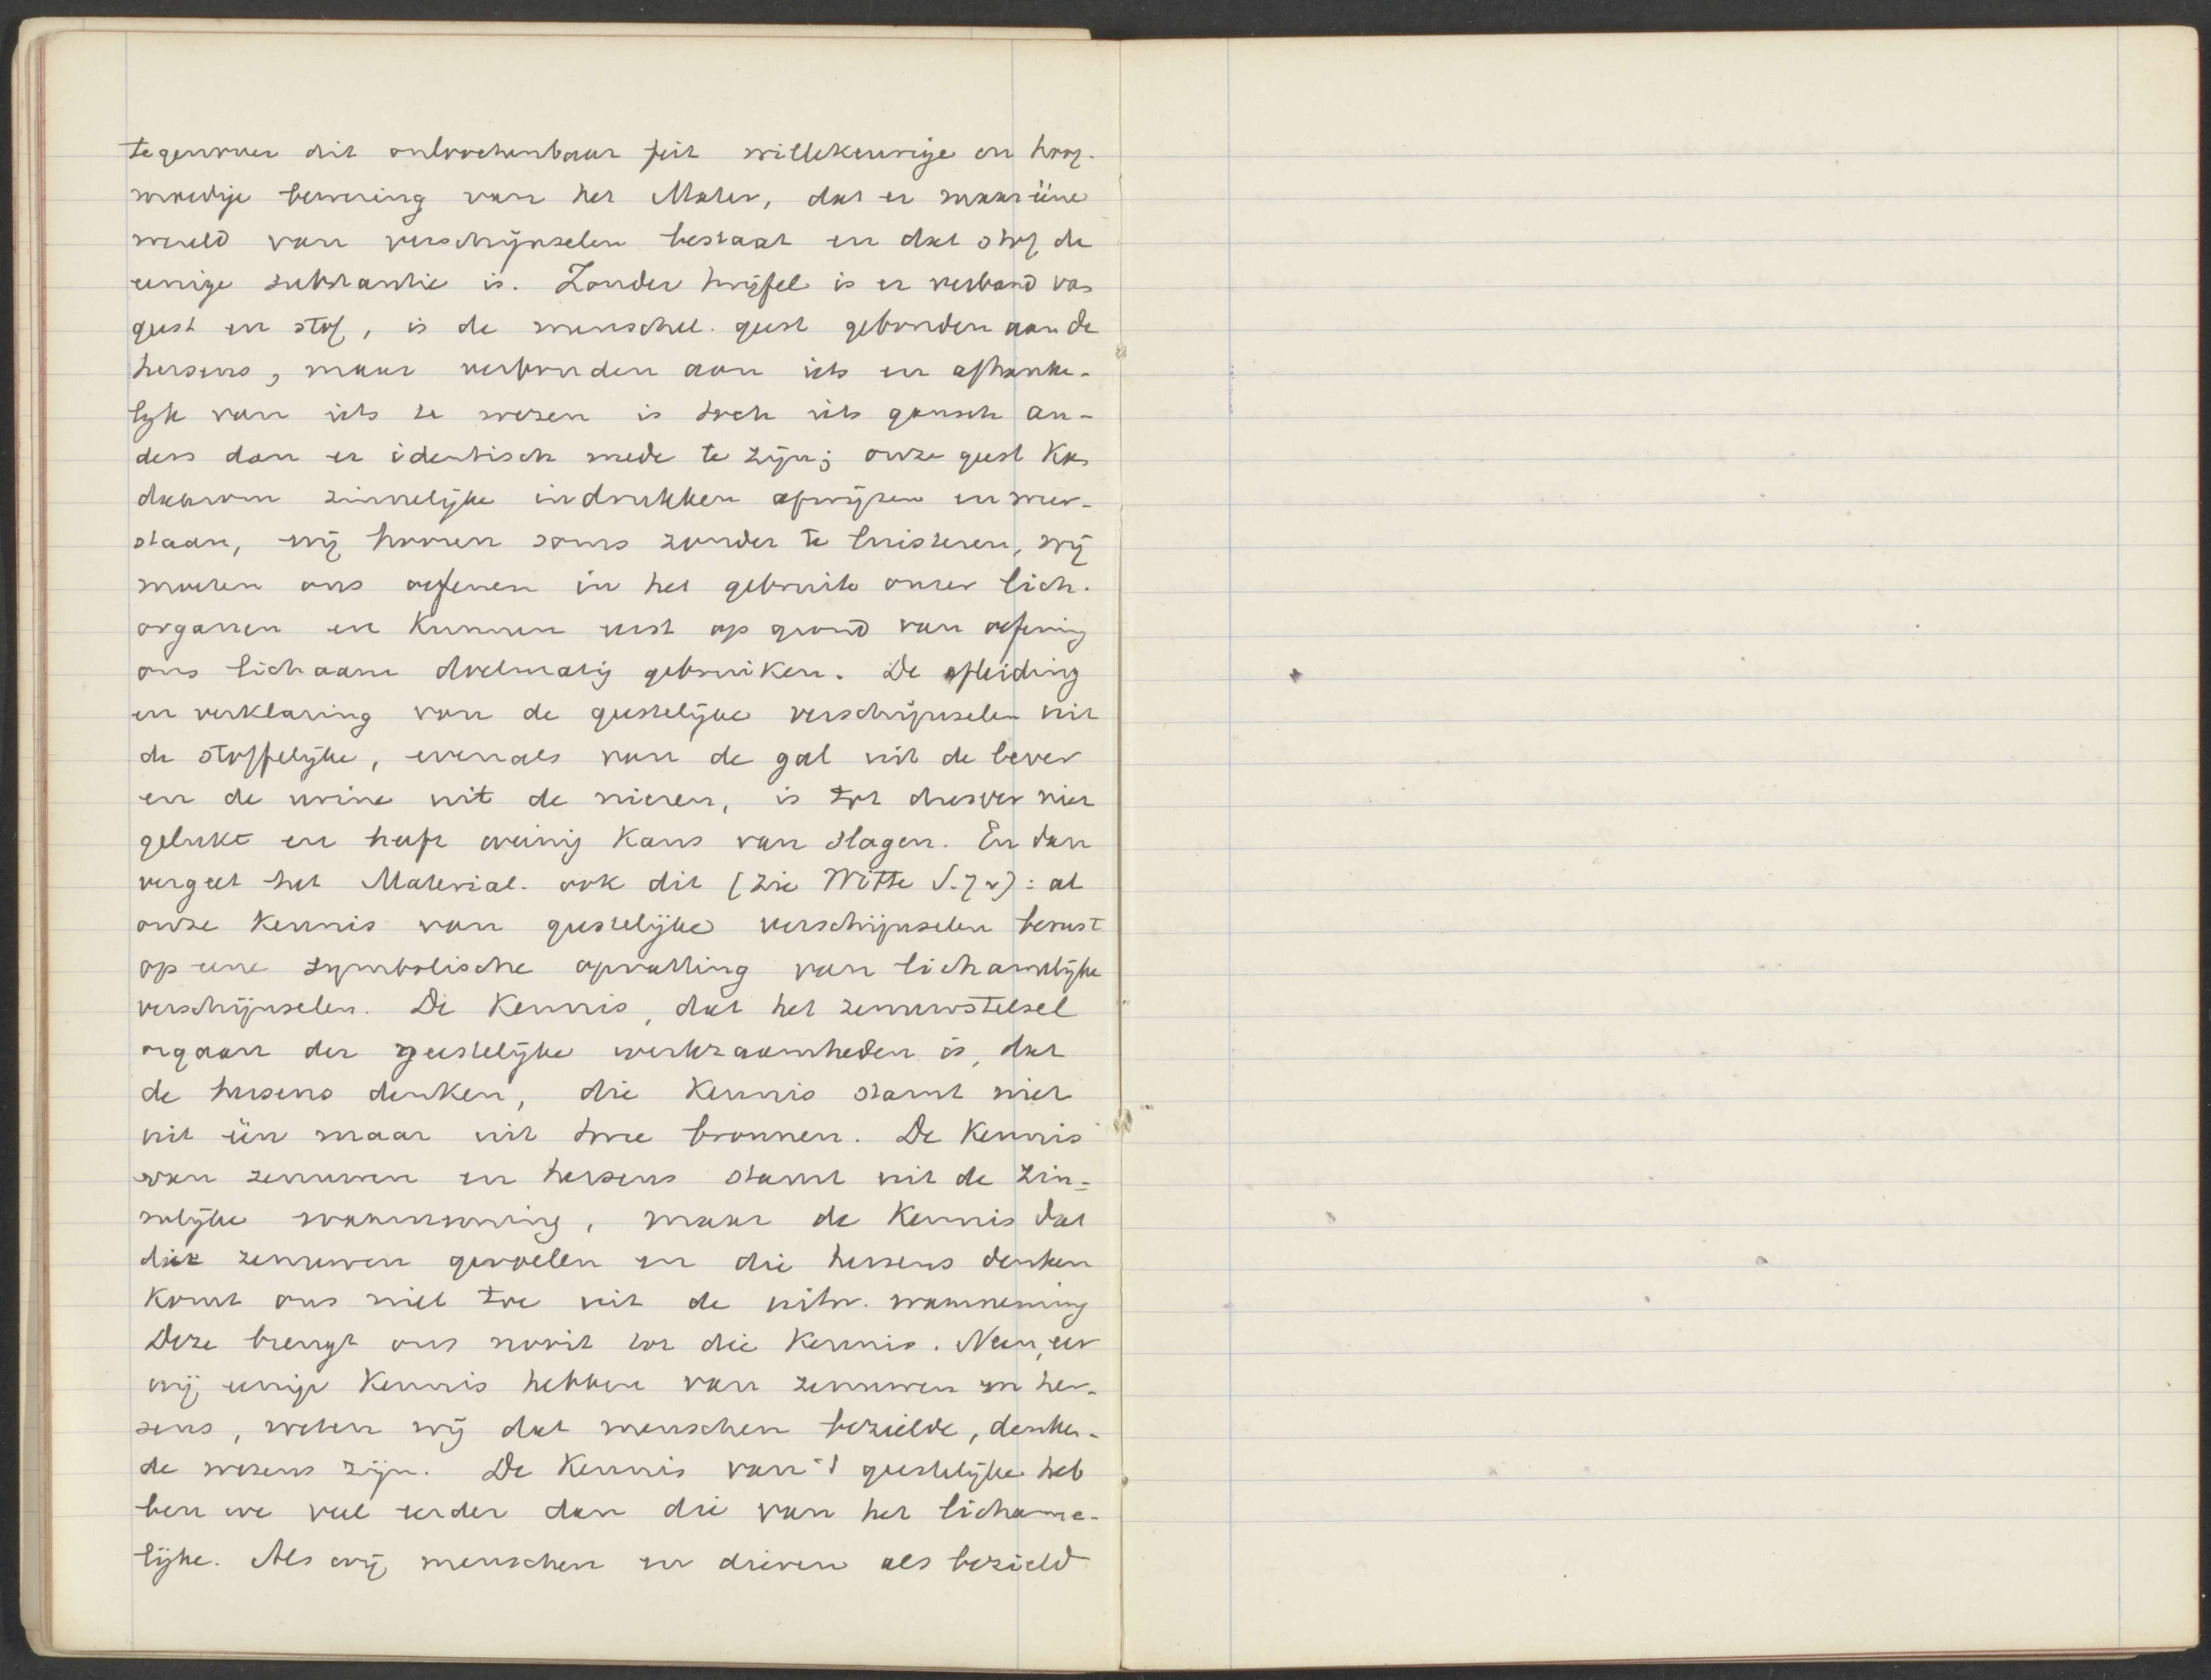 tegenover dit onloochenbaar feit willekeurige en hoog-
moedige bewering van het Mater, dat er maar ééne
wereld van verschijnselen bestaat en dat stof de
eenige substantie is. Zonder twijfel is er verband van
geest en stof, is de menschel. geest gebonden aan de
hersens, maar verbonden aan iets en afhanke-
lijk van iets te wezen is toch iets gansch an-
ders dan er identisch mede te zijn; onze geest kan
daarom zinnelijke indrukken afwijzen en weer-
staan, wij hooren soms zonder te luisteren, wij
moeten ons oefenen in het gebruik onzer lich.
organen en kunnen eerst op grond van oefening
ons lichaam doelmatig gebruiken. De afleiding
en verklaring van de geestelijke verschijnselen uit
de stoffelijke, evenals van de gal uit de lever
en de urine uit de nieren, is tot dusver niet
gelukt en heeft weinig kans van slagen. En dan
vergeet het Material. ook dit (zie Witte S. 7 v): al
onze kennis van geestelijke verschijnselen berust
op eene symbolische opvatting van lichamelijke
verschijnselen. De kennis, dat het zenuwstelsel
orgaan der geestelijke werkzaamheden is, dat
de hersens denken, die kennis stamt niet
uit één maar uit twee bronnen. De kennis
van zenuwen en hersens stamt uit de zin-
nelijke waarneming, maar de kennis dat
die zenuwen gevoelen en die hersens denken
komt ons niet toe uit de uitw. waarneming
Deze brengt ons nooit tot die kennis. Neen, eer
wij eenige kennis hebben van zenuwen en her-
sens, weten wij dat menschen bezielde, denken-
de wezens zijn. De kennis van 't geestelijke heb
ben we veel eerder dan die van het lichame-
lijke. Als wij menschen en dieren als bezield